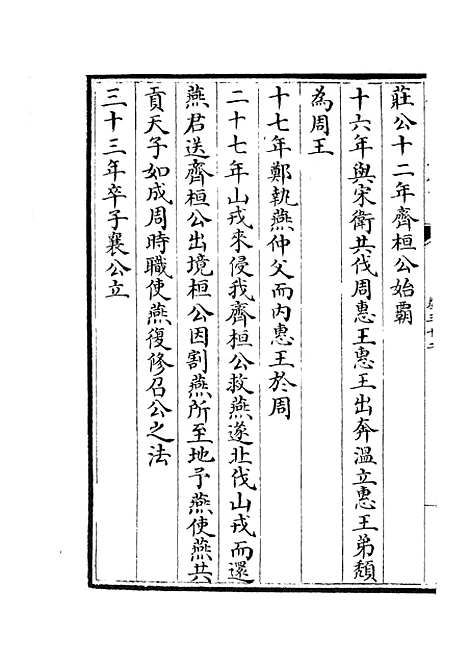 莊公十二年齊桓公始霸
十六年與宋衛共伐周惠王惠王出奔溫立惠王弟頽
為周王
十七年鄭執燕仲父而內惠王於周
二十七年山戎來侵我齊桓公救燕遂北伐山戎而還
燕君送齊桓公出境桓公因割燕所至地予燕使燕共
貢天子如成周時職使燕復修召公之法
三十三年卒子襄公立